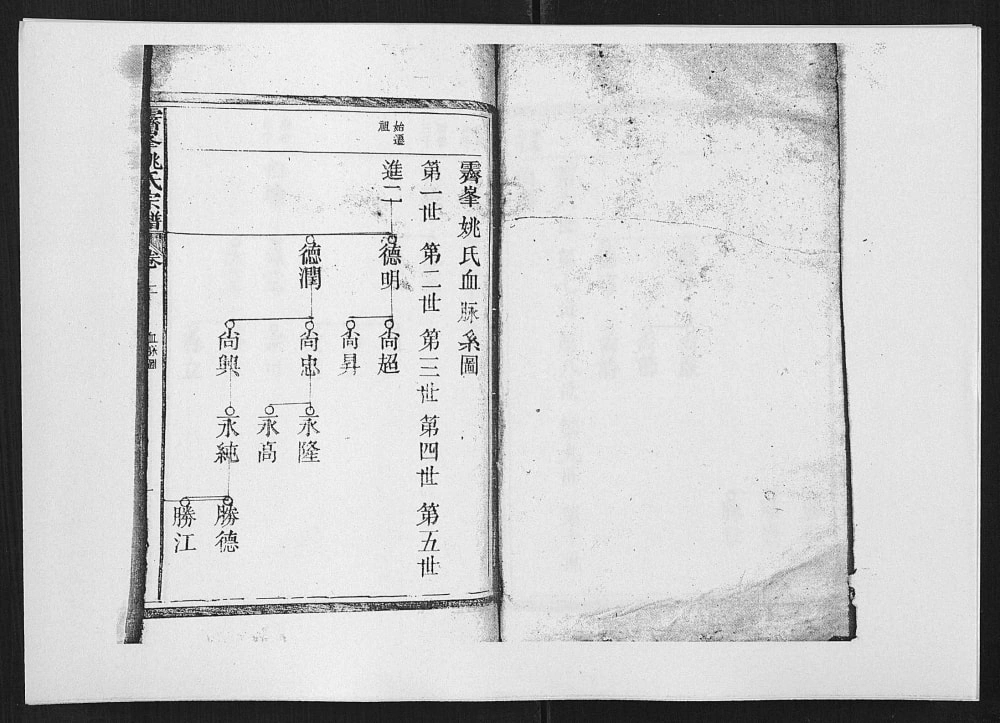 霽峯姚氏血脉系圖
第一世 第二世 第三世 第四世 第五世
始遷祖
進二
德明 德潤
尙超 尙昇 尙忠 尙興
永隆 永高 永純
勝德 勝江
霽峯姚氏宗譜 卷二 血脉圖